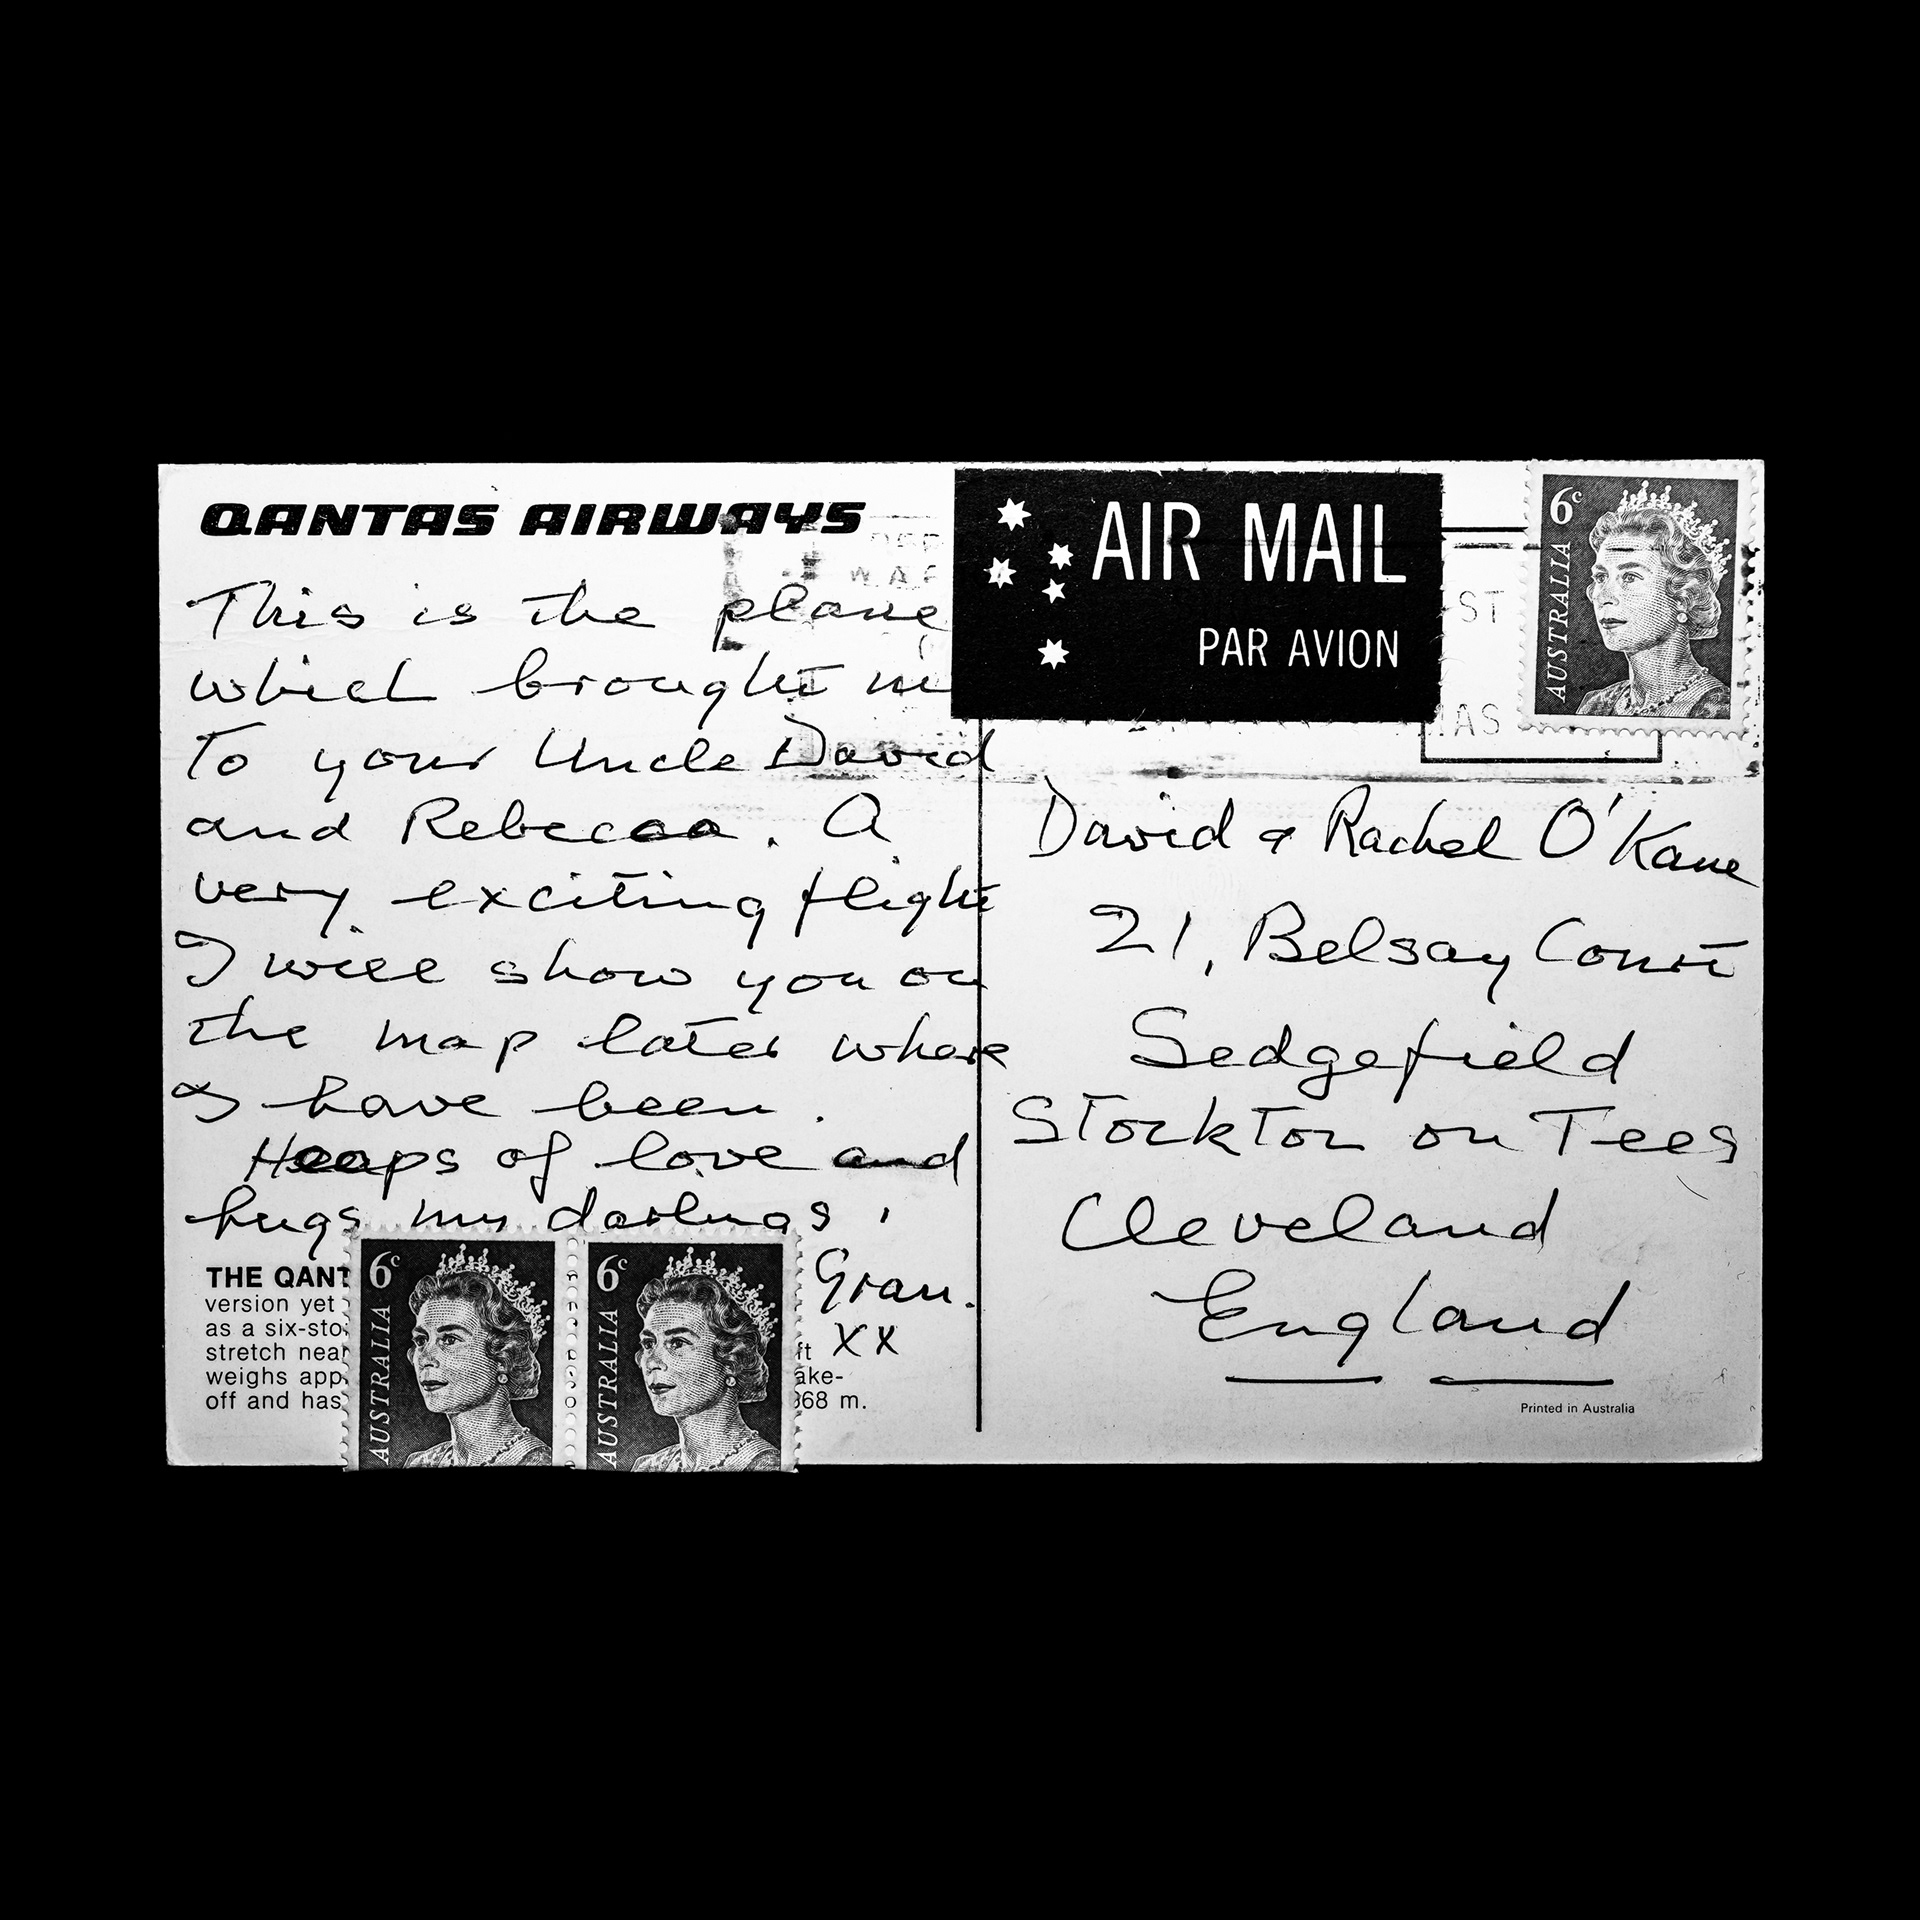 QANTAS AIRWAYS
W.A.
This is the plane
which brought
to your Uncle David
and Rebecca. A
very exciting flight
I will show you on
the map later where
I have been.
Heaps of love and
hugs my darlings,
Gran.
XX
THE QANT
version yet
as a six-sto
stretch near
weighs app
off and has
ft
ake-
368 m.
6c
AUSTRALIA
6c
AUSTRALIA
AIR MAIL
PAR AVION
ST
AS
6c
AUSTRALIA
David & Rachel O'Kane
21, Belsay Court
Sedgefield
Stockton on Tees
Cleveland
England
Printed in Australia